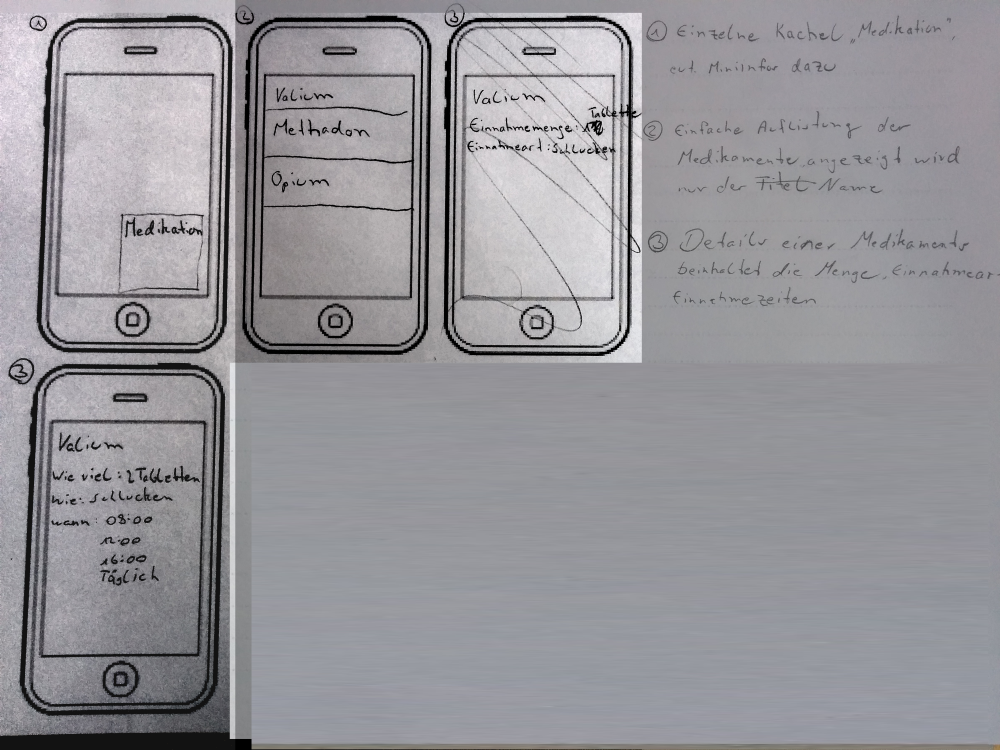 1
Medikation
2
Valium
Methadon
Opium
3
Valium
Tablette
Einnahmemenge:
Einnahmeart: schlucken
1 Einzelne Kachel „Medikation",
evt. Miniinfos dazu
2 Einfache Auflistung der
Medikamente, angezeigt wird
nur der Titel Name
3 Details eines Medikaments
beinhaltet die Menge, Einnahmear
Einnahmezeiten
3
Valium
Wie viel: 2 Tabletten
wie: schlucken
wann: 08:00
12:00
16:00
Täglich